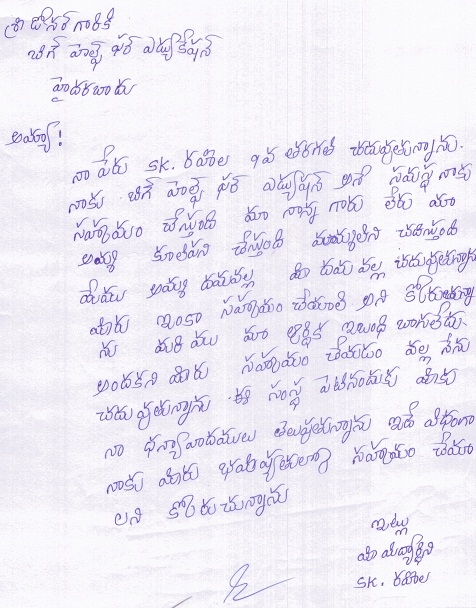 శ్రీ డోనర్ గారికి
బిగ్ హెల్ప్ ఫర్ ఎడ్యుకేషన్
హైదరబాదు
అమ్మా!
నా పేరు sk. రహీల 9వ తరగతి చదువుతున్నాను.
నాకు బిగ్ హెల్ప్ ఫర్ ఎడ్యుషన్ అనే సమస్థ నాకు
సహాయం చేస్తుంది మా నాన్న గారు లేరు మా
అమ్మ కూలిపని చేస్తుంది మమ్మల్ని చదిస్తుంది
మేము అమ్మ దయవల్ల మీ దయ వల్ల చదువుతున్నాను
మీరు ఇంకా సహాయం చేయాలి అని కోరుతున్నా
ను మరి ము మా ఆర్థిక ఇబంధి బాగలేదు.
అందకని మీరు సహాయం చేయడం వల్ల నేను
చదువుతున్నాను. ఈ సంస్థ పెటినందుకు మీకు
నా ధన్యావాదములు తెలుపుతున్నాను ఇదే విధంగా
నాకు మీరు భవిష్యతులో సహాయం చేయా
లని కోరుచున్నాను
ఇట్లు
మీ విద్యార్థిని
sk. రహీల